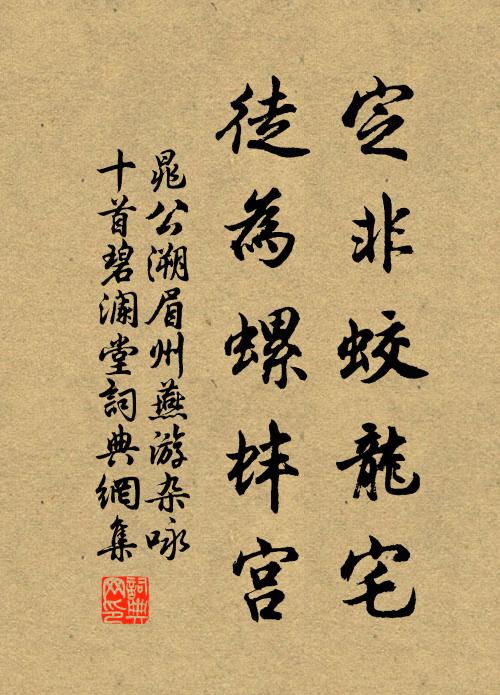 定非蛟龍宅
徒為螺蚌宮
晁公溯眉州燕游杂咏
十首碧瀾堂詞典網集
詞典網印